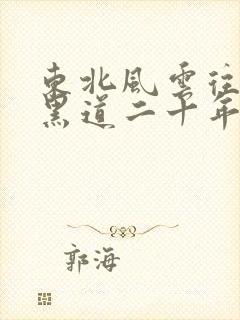 東北風雲往
黑道二十年
郭海